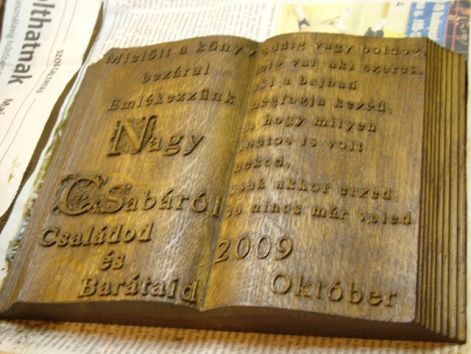 Mielőtt a könyv
bezárul
Emlékezzünk
Nagy
Csabáról
Családod
és
Barátaid
addig vagy boldog,
míg van aki szeret,
aki a bajban
megfogja kezed,
s hogy milyen
fontos is volt
neked,
csak akkor érzed,
ha nincs már veled
2009
Október
lthatnak